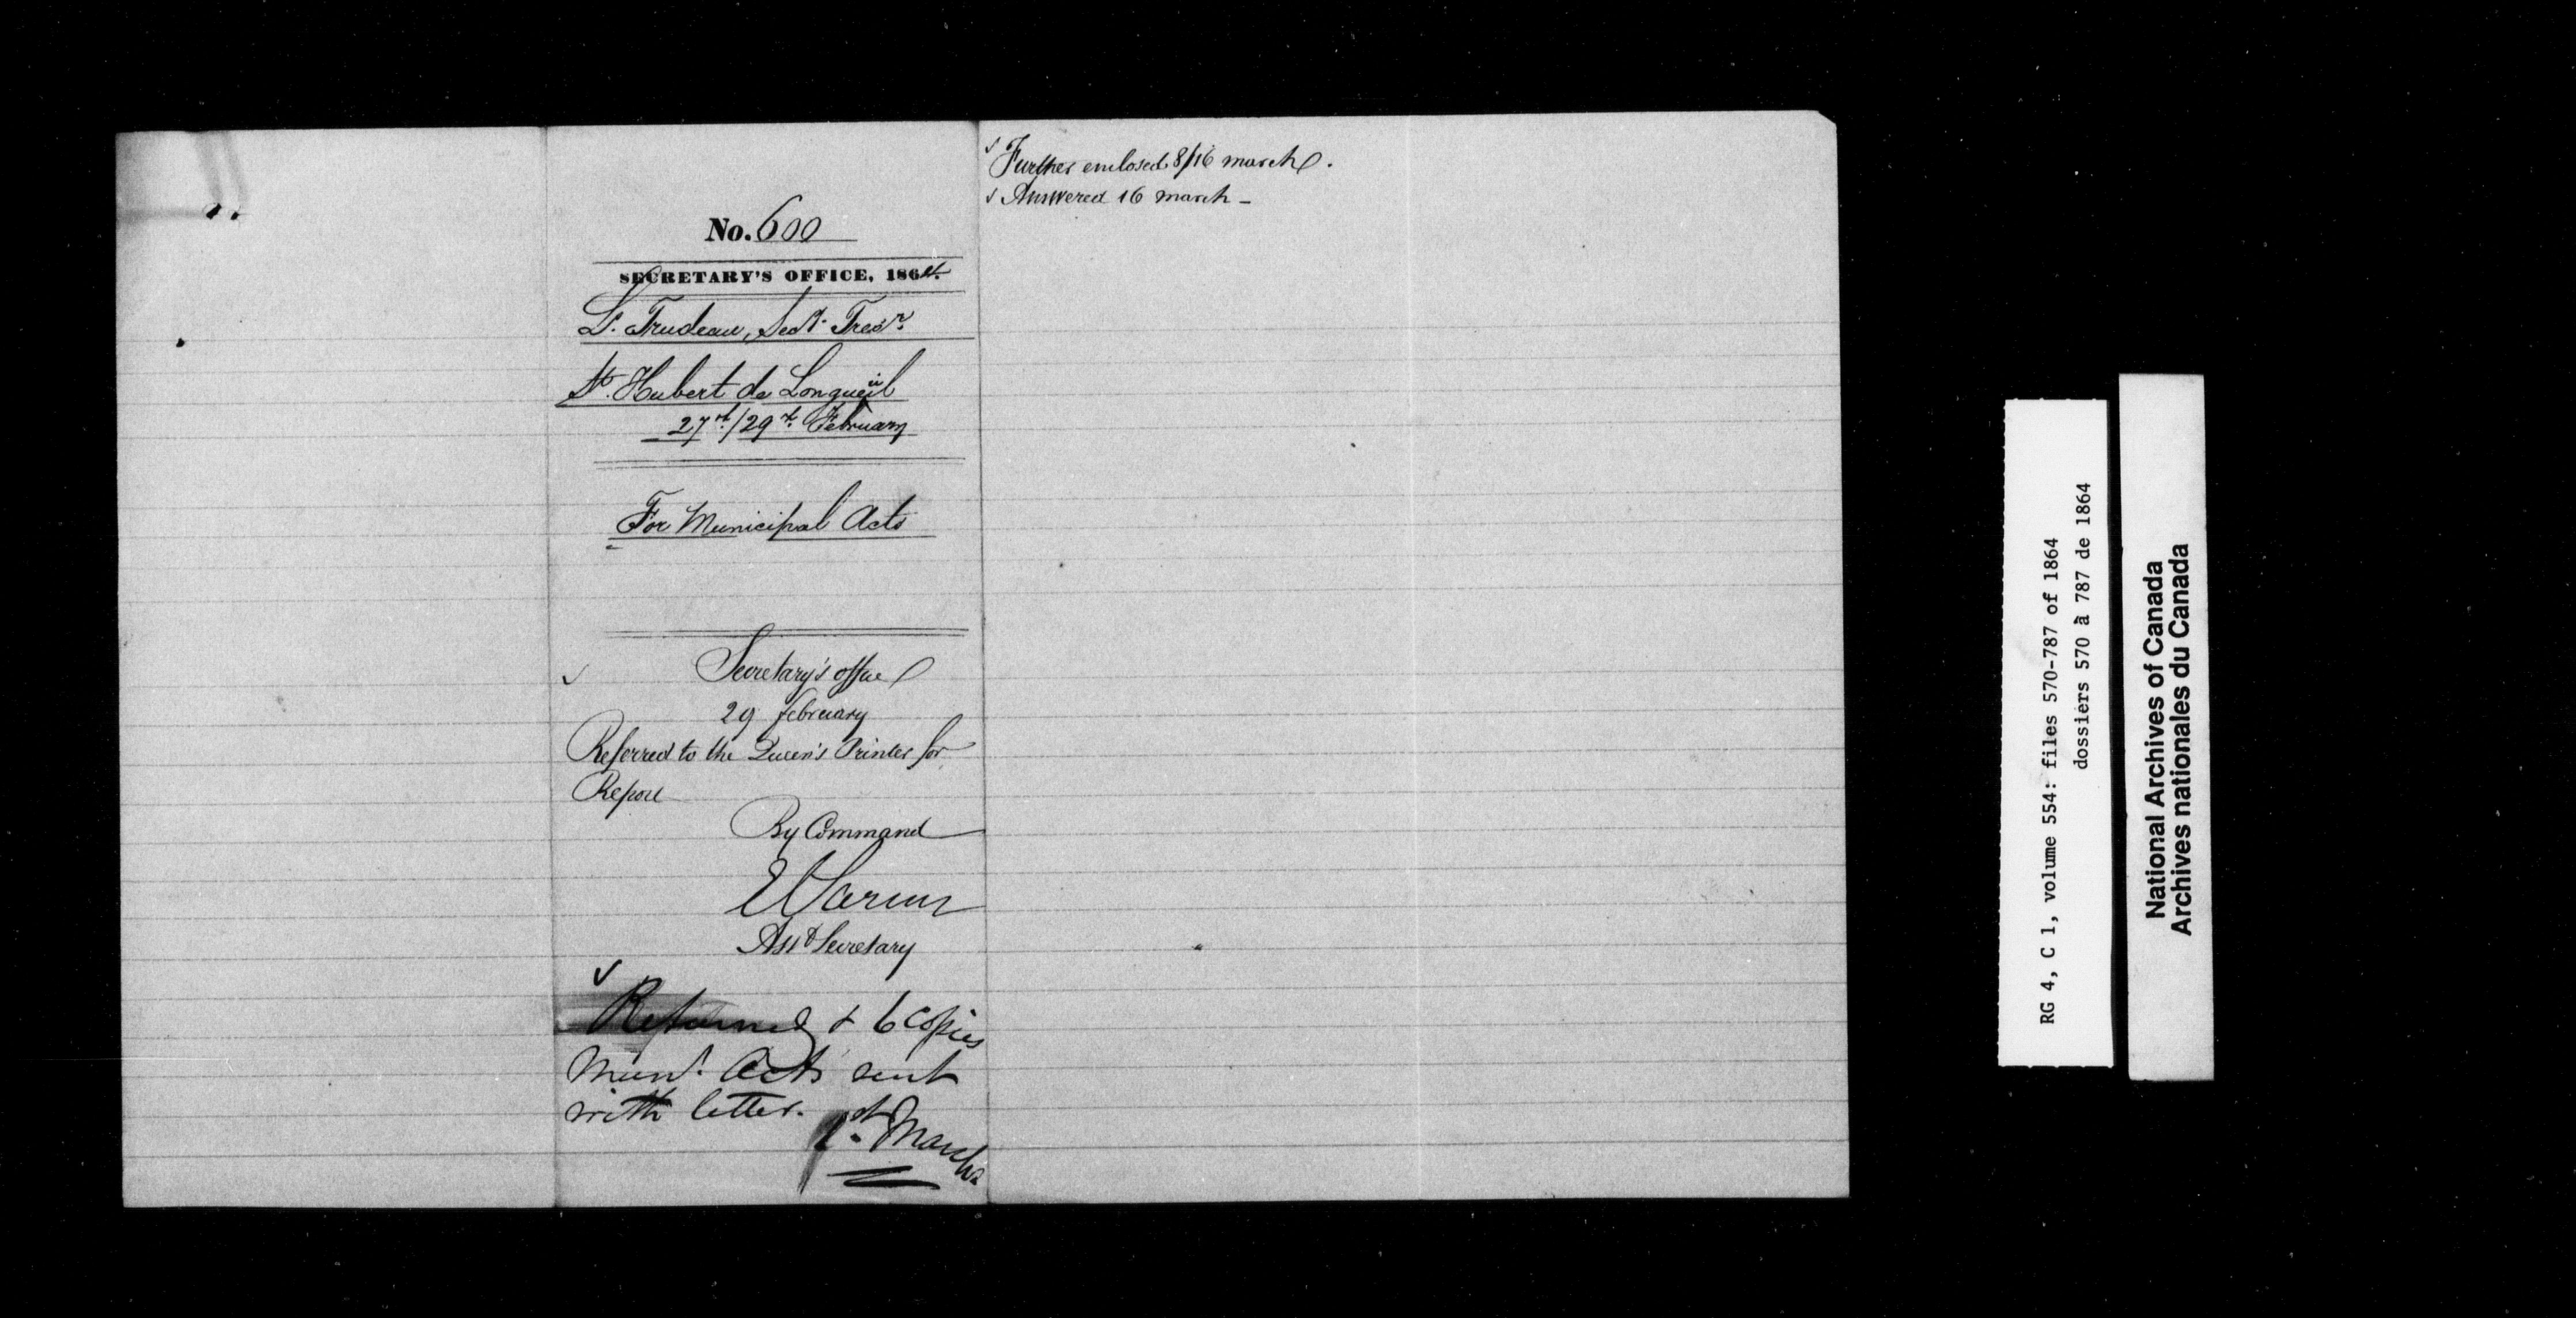 No. 600
SECRETARY'S OFFICE, 1864.
L. Trudeau, Sec^y. Tres^r.
St. Hubert de Longueuil
27th/29th February
For Municipal Acts
Secretary's office
29 february
Referred to the Queen's Printer for
Report
By Command
Ass^t Secretary
Returned & 6 copies
Mun^l. Acts sent
with letter.
1st March
Further enclosed 8/16 march.
Answered 16 march -
RG 4, C 1, volume 554: files 570-787 of 1864
dossiers 570 à 787 de 1864
National Archives of Canada
Archives nationales du Canada